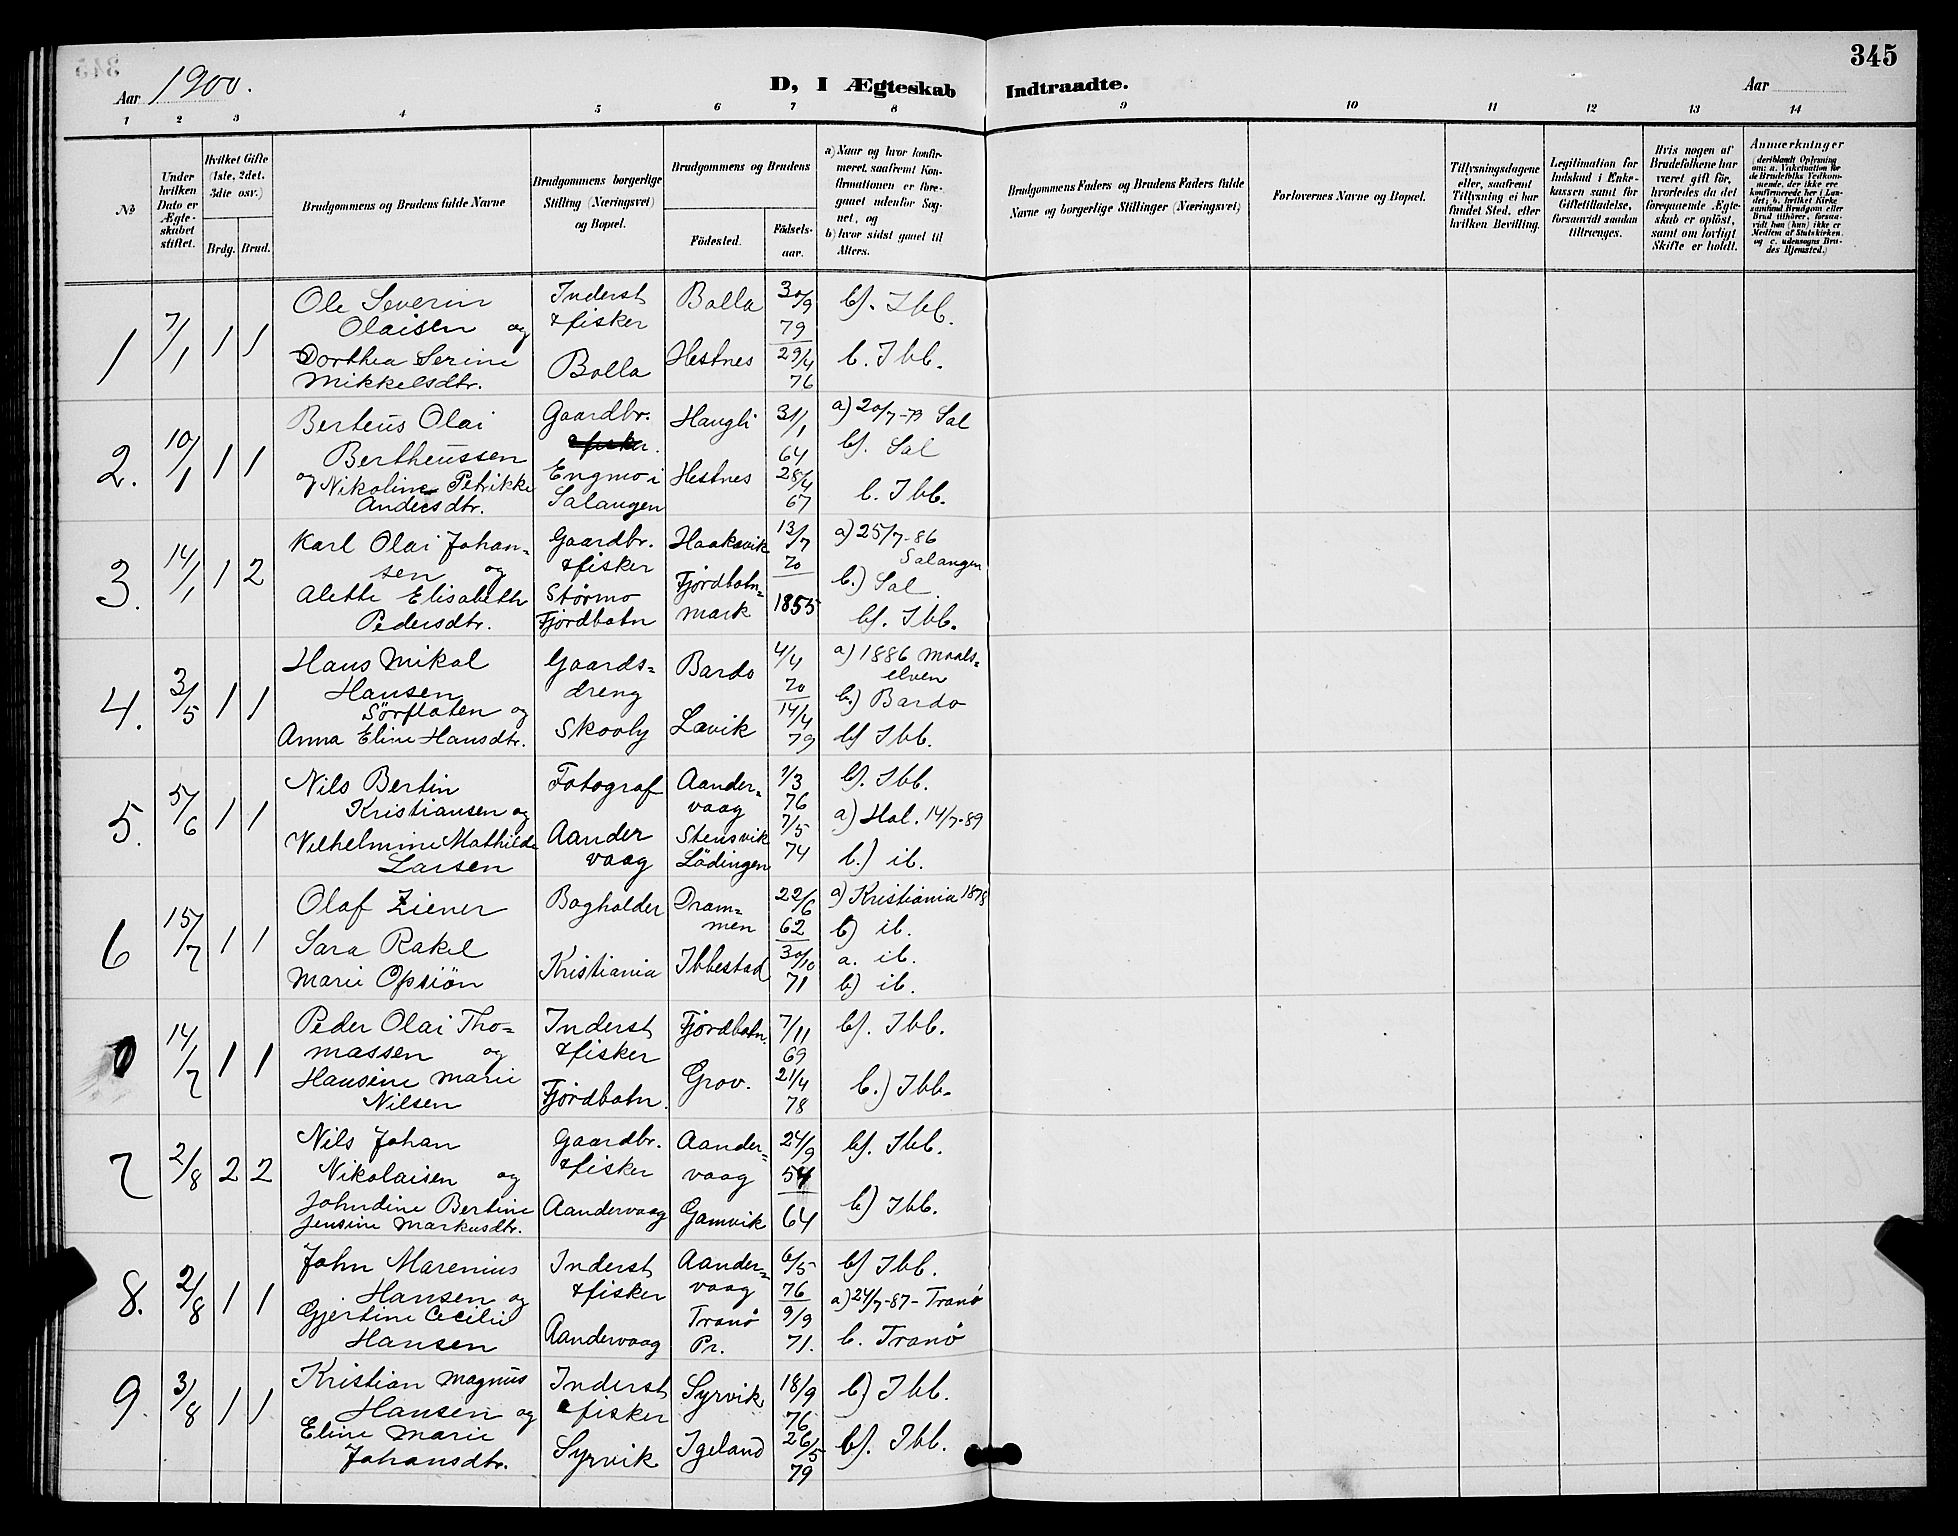 345
Aar 1900.
D, I Ægteskab Indtraadte.
Aar
1 2 3 4 5 6 7 8 9 10 11 12 13 14
№
Under hvilken Dato er Ægteskabet stiftet.
Hvilket Gifte (1ste, 2det, 3die osv.)
Brdg. Brud.
Brudgommens og Brudens fulde Navne
Brudgommens borgerlige Stilling (Næringsvei) og Bopæl.
Brudgommens og Brudens
Fødested.
Fødselsaar.
a) Naar og hvor konfirmeret, saafremt Konfirmationen er foregaaet udenfor Sognet, og
b) hvor sidst gaaet til Alters.
Brudgommens Faders og Brudens Faders fulde Navne og borgerlige Stillinger (Næringsvei)
Forlovernes Navne og Bopæl.
Tillysningsdagene eller, saafremt Tillysning ei har fundet Sted, efter hvilken Bevilling.
Legitimation for Indskud i Enkekassen samt for Giftetilladelse, forsaavidt saadan tiltrænges.
Hvis nogen af Brudefolkene har været gift før, hvorledes da det foregaaende Ægteskab er opløst, samt om lovligt Skifte er holdt.
Anmærkninger
(deriblandt Oplysning om: a. Vakcination for de Brudefolks Vedkommende, der ikke ere konfirmerede her i Landet; b. hvilket Kirkesamfund Brudgom eller Brud tilhører, forsaavidt han (hun) ikke er Medlem af Statskirken, og c. udensogns Brudes Hjemsted.)
1 7/1 1 1
Ole Severin
Olaisen og
Dorthea Serine
Mikkelsdtr.
Inderst
& fisker
Bolla
Bolla
Hestnes
30/9
79
29/4
76
b). Ibb.
b. Ibb.
2. 10/1 1 1
Berteus Olai
Bertheussen
og Nikoline Petrikke
Andersdtr.
Gaardbr.
& fisker.
Engmo i
Salangen
Haugli
Hestnes
31/1
64
28/4
67
a) 20/7-79 Sal
b). Sal
b. Ibb.
3. 14/1 1 2
Karl Olai Johan=
sen og
Alette Elisabeth
Pedersdtr.
Gaardbr.
& fisker
Størmo
Fjordbotn
Haakavik
Fjordbotn=
mark
13/7
70
1855
a) 25/7-86
Salangen
b.) Sal.
b). Ibb.
4. 3/5 1 1
Hans Mikal
Hansen
Sörfloten og
Anna Eline Hansdtr.
Gaards=
dreng
Skovly
Bardo
Lavik
4/4
70
14/4
79
a) 1886 Maals=
elven
b.) Bardo
b) Ibb.
5. 5/6 1 1
Nils Bertin
Kristiansen og
Vilhelmine Mathilde
Larsen
Fotograf
Aander
vaag
Aander=
vaag
Stensvik
Lödingen
1/3
76
7/5
74
b). Ibb.
a) Hol. 14/7-89
b.) ib.
6 15/7 1 1
Olaf Ziener
Sara Rakel
Marie Opsiön
Bogholder
Kristiania
Dram=
men
Ibbestad
22/6
62
30/10
71
a) Kristiania 1878
b) ib.
a. ib.
b) ib.
0 14/7 1 1
Peder Olai Tho=
massen og
Hansine Marie
Nilsen
Inderst
& fisker
Fjordbotn.
Fjordbotn.
Grov.
7/11
69
21/4
78
b). Ibb.
b.) Ibb.
7 2/8 2 2
Nils Johan
Nikolaisen og
Johndine Bertine
Jensine Markusdtr.
Gaardbr.
& fisker
Aandervaag
Aander=
vaag
Gamvik
24/9
54
64
b). Ibb.
b) Ibb.
8. 2/8 1 1
John Marenius
Hansen og
Gjertine Cecilie
Hansen
Inderst
& fisker
Aandervaag
Aander=
vaag
Tranö
Pr.
6/5
76
9/9
71.
b) Ibb.
a) 24/7-87- Tranö
b. Tranö
9. 3/8 1 1
Kristian Magnus
Hansen og
Eline Marie
Johansdtr.
Inderst
& fisker
Syrvik
Syrvik
Igeland
18/9
76
26/5
79
b) Ibb.
b). Ibb.